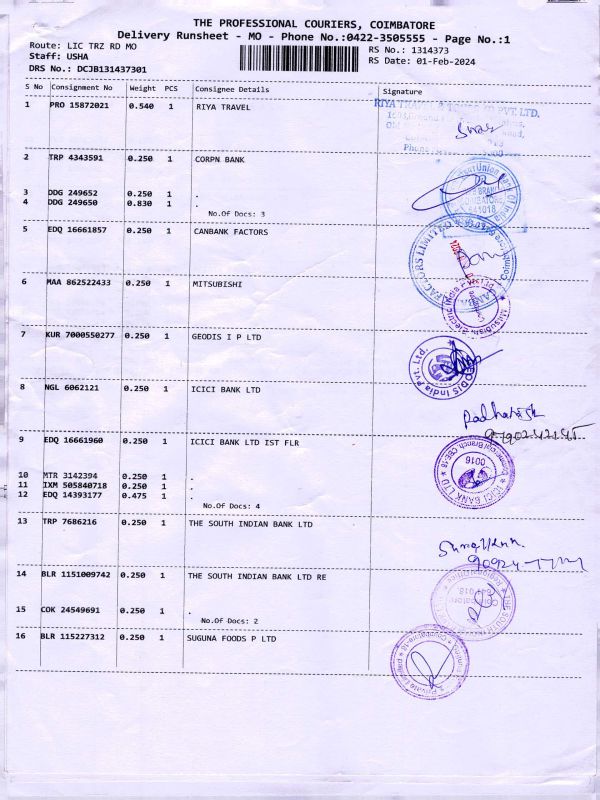 THE PROFESSIONAL COURIERS, COIMBATORE
Delivery Runsheet - MO - Phone No.:0422-3505555 - Page No.:1
Route: LIC TRZ RD MO RS No.: 1314373
Staff: USHA RS Date: 01-Feb-2024
DRS No.: DCJB131437301
S No Consignment No Weight PCS Consignee Details Signature
1 PRO 15872021 0.540 1 RIYA TRAVEL
2 TRP 4343591 0.250 1 CORPN BANK
3 DDG 249652 0.250 1 .
4 DDG 249650 0.830 1 .
No.Of Docs: 3
5 EDQ 16661857 0.250 1 CANBANK FACTORS
6 MAA 862522433 0.250 1 MITSUBISHI
7 KUR 7000550277 0.250 1 GEODIS I P LTD
GEODIS India Pvt. Ltd.
8 NGL 6062121 0.250 1 ICICI BANK LTD
9 EDQ 16661960 0.250 1 ICICI BANK LTD IST FLR
ICICI BANK LTD
10 MTR 3142394 0.250 1 .
11 IXM 505840718 0.250 1 .
12 EDQ 14393177 0.475 1 .
No.Of Docs: 4
13 TRP 7686216 0.250 1 THE SOUTH INDIAN BANK LTD
14 BLR 1151009742 0.250 1 THE SOUTH INDIAN BANK LTD RE
15 COK 24549691 0.250 1 .
No.Of Docs: 2
16 BLR 115227312 0.250 1 SUGUNA FOODS P LTD